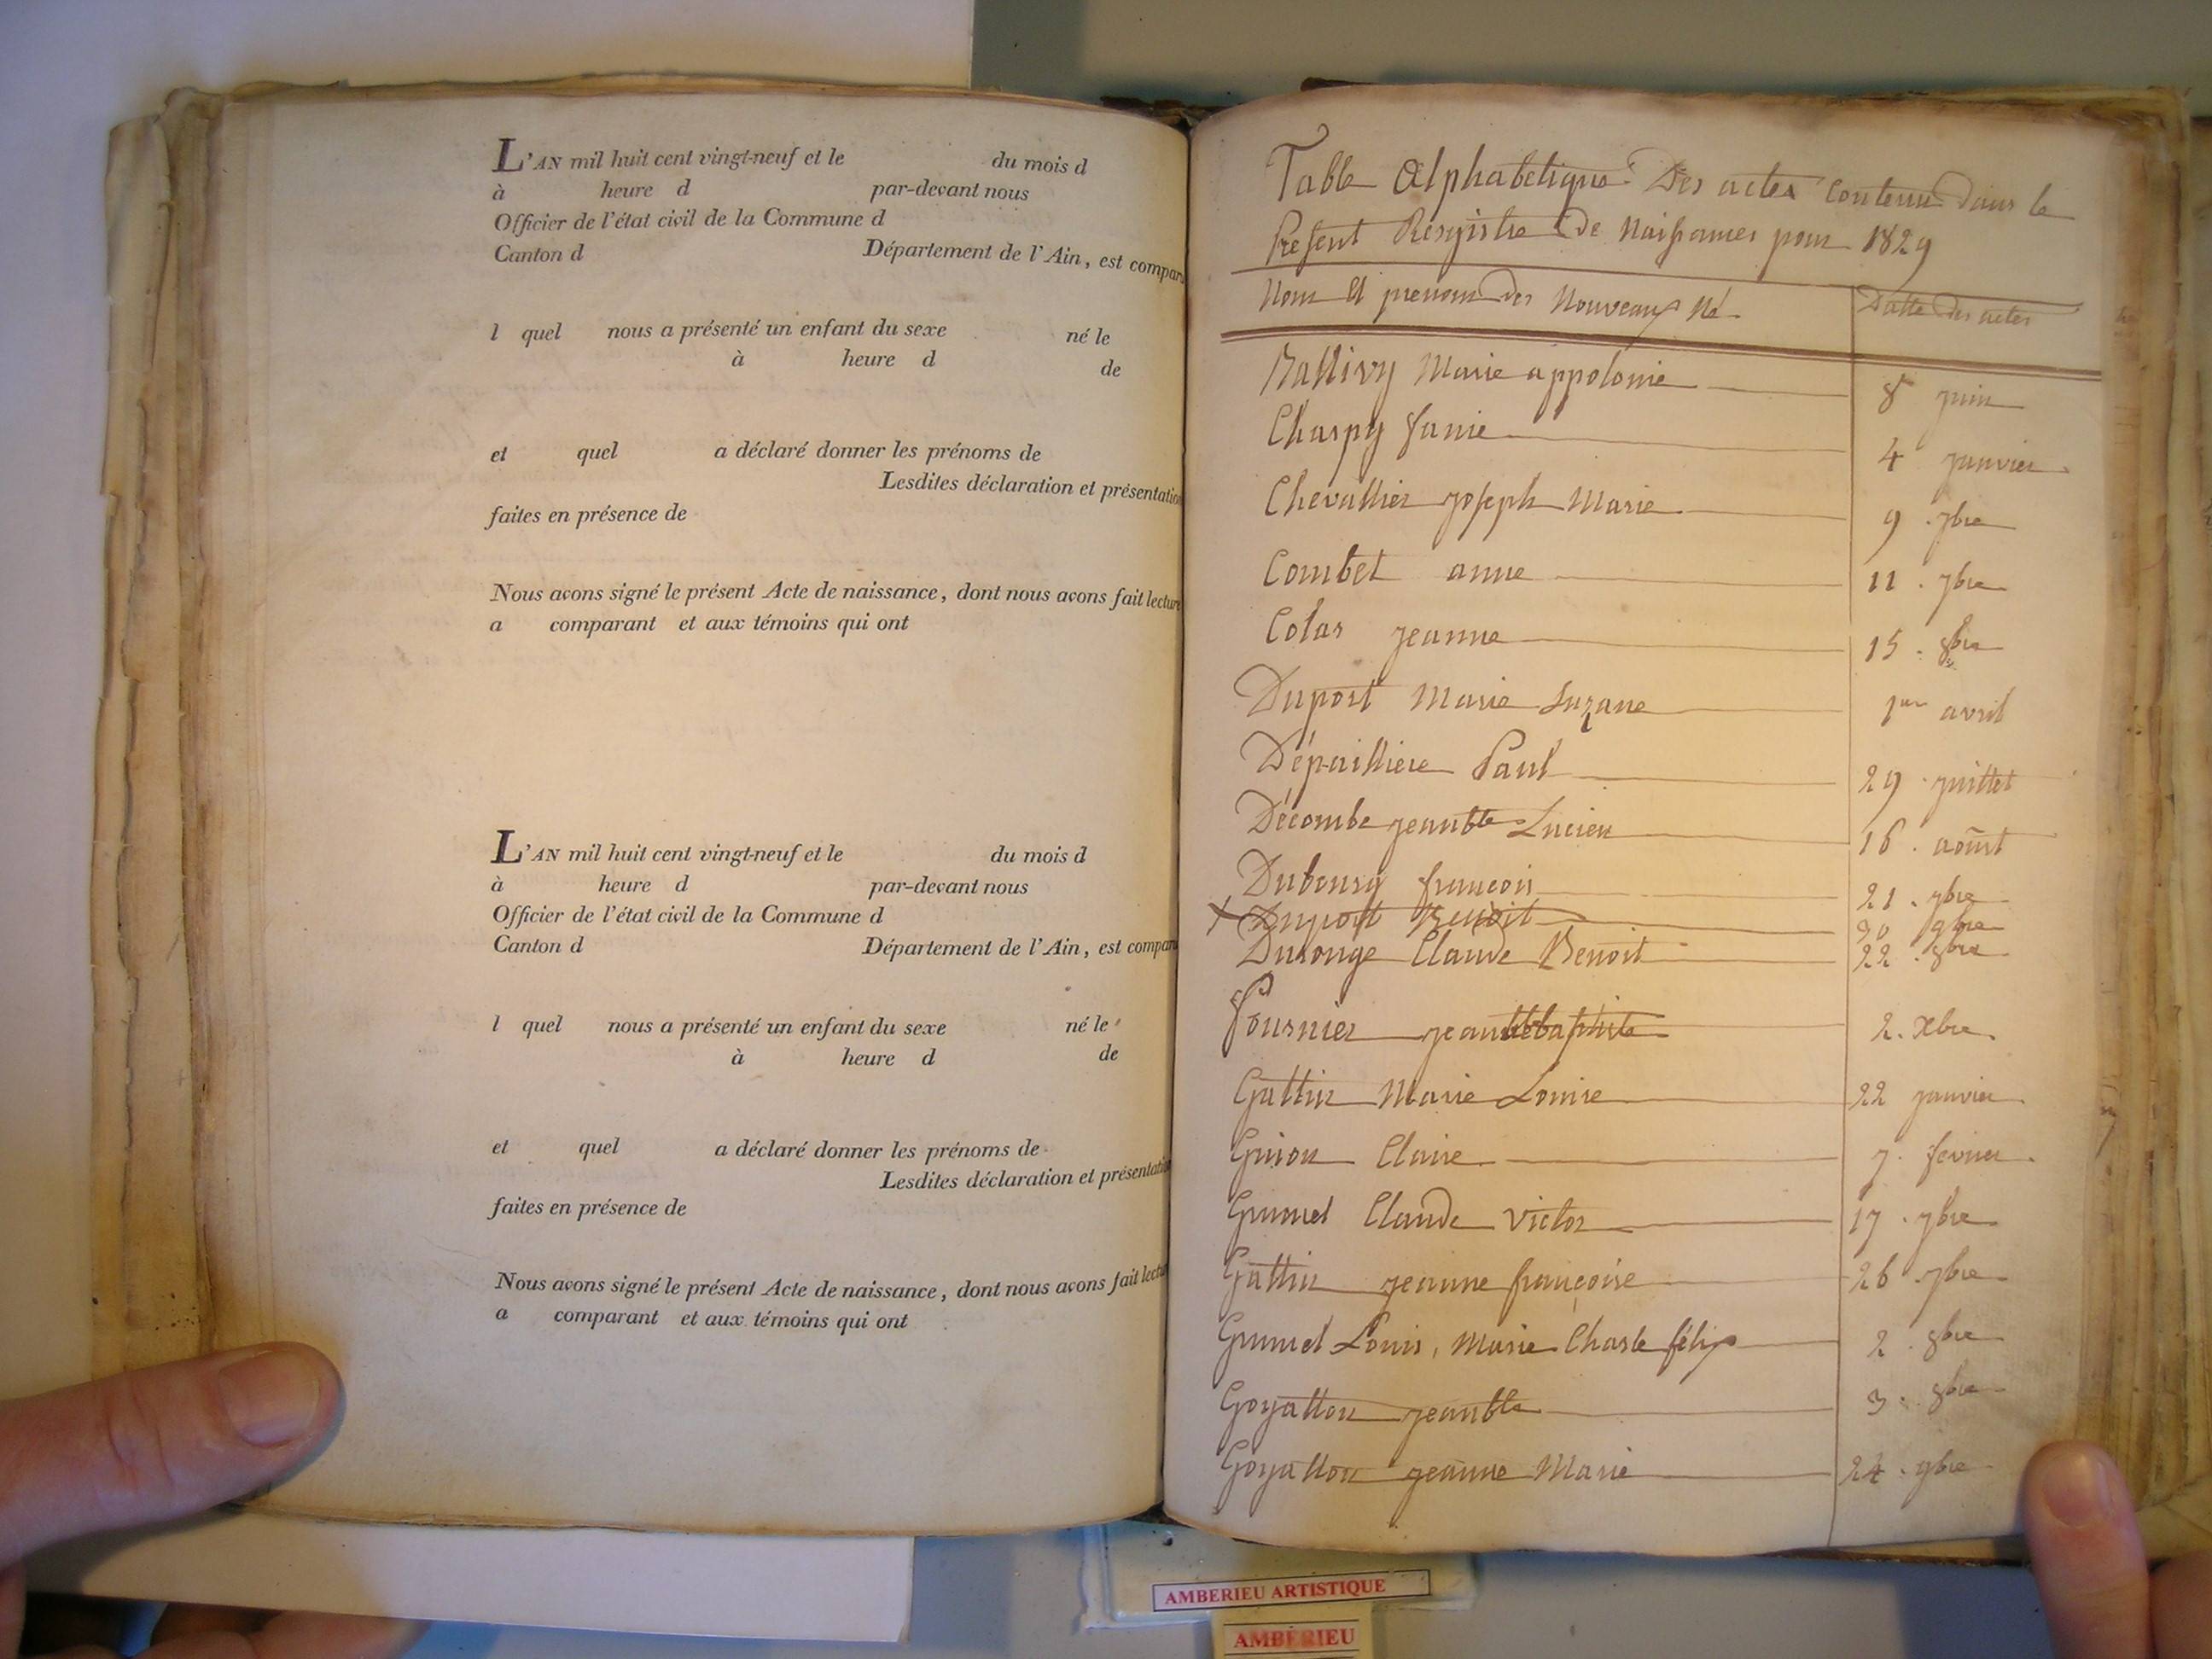 L'AN mil huit cent vingt-neuf et le du mois d
à heure d par-devant nous
Officier de l'état civil de la Commune d
Canton d Département de l'Ain, est compar
l quel nous a présenté un enfant du sexe né le
à heure d de
et quel a déclaré donner les prénoms de
Lesdites déclaration et présentation
faites en présence de
Nous avons signé le présent Acte de naissance, dont nous avons fait lecture
a comparant et aux témoins qui ont
L'AN mil huit cent vingt-neuf et le du mois d
à heure d par-devant nous
Officier de l'état civil de la Commune d
Canton d Département de l'Ain, est compar
l quel nous a présenté un enfant du sexe né le
à heure d de
et quel a déclaré donner les prénoms de
Lesdites déclaration et présentatio
faites en présence de
Nous avons signé le présent Acte de naissance, dont nous avons fait lectu
a comparant et aux témoins qui ont
Table Alphabetique Des actes Contenu Dans le
Present Resgistre De Naissances pour 1829
Noms et prenoms des Nouveaux Né Datte des actes
Ballivy Marie appolonie 8 juin
Charpy fanie 4 janvier
Chevallier joseph Marie 9 . 7bre
Combet anne 11 . 7bre
Colas jeanne 15 . 8bre
Duport Marie Suzane 1er avril
Dépaillière Paul 29 . juillet
Décombe jean bte Lucien 16 . août
Dubourg françois 21 . 7bre
Duport Benoit 30 9bre
Durouge Claude Benoit 22 . 8bre
Fournier jean baptiste 2 . Xbre
Gattin Marie Louise 22 janvier
Guion Claire 7 . fevrier
Grumel Claude victor 17 . 7bre
Gattin jeanne françoise 26 . 7bre
Grumel Louis, Marie Charle félix 2 . 8bre
Goyatton jean bte 3 . 8bre
Goyatton jeanne Marie 24 . 9bre
AMBERIEU ARTISTIQUE
AMBERIEU